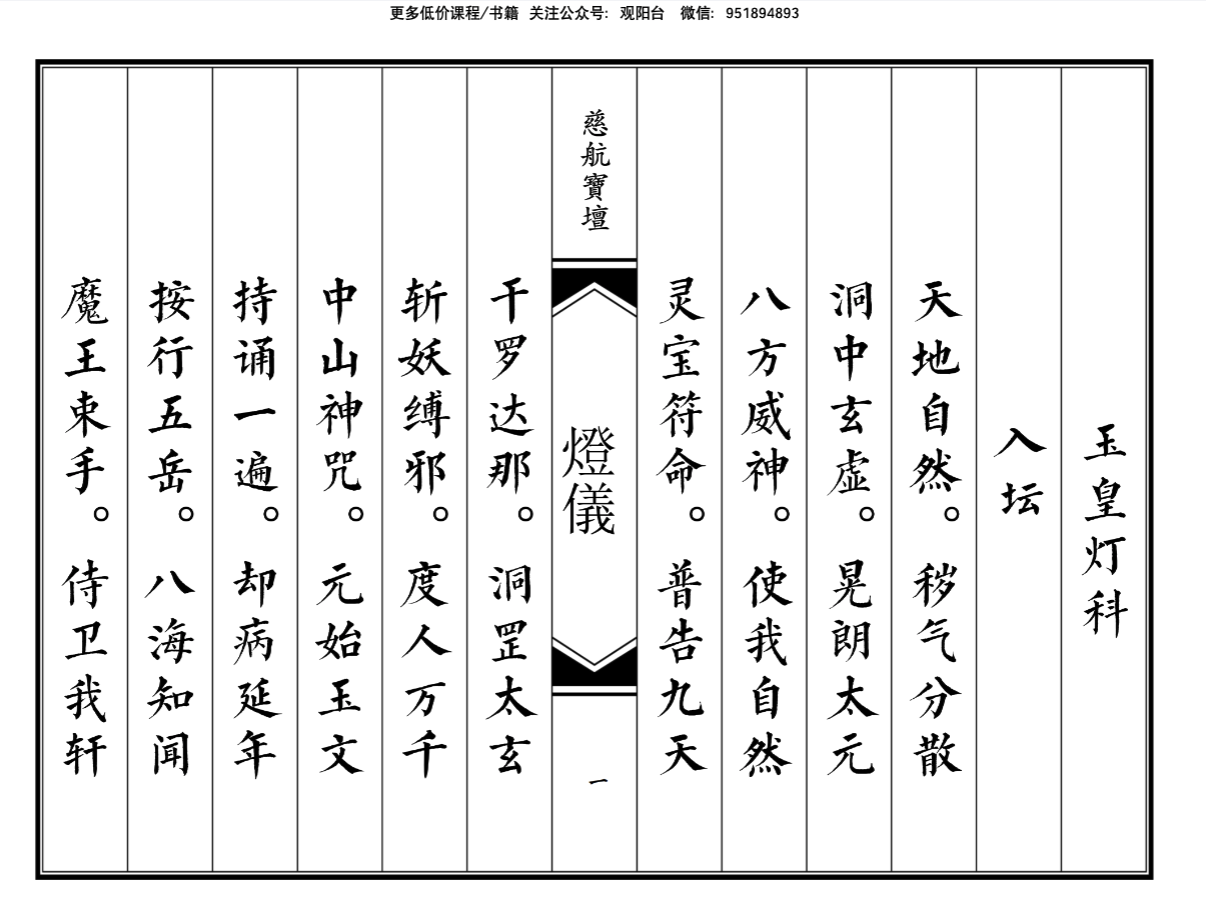 更多低价课程/书籍 关注公众号: 观阳台 微信: 951894893
玉皇灯科
入坛
天地自然。秽气分散
洞中玄虚。晃朗太元
八方威神。使我自然
灵宝符命。普告九天
慈航寶壇
燈儀
一
干罗达那。洞罡太玄
斩妖缚邪。度人万千
中山神咒。元始玉文
持诵一遍。却病延年
按行五岳。八海知闻
魔王束手。侍卫我轩